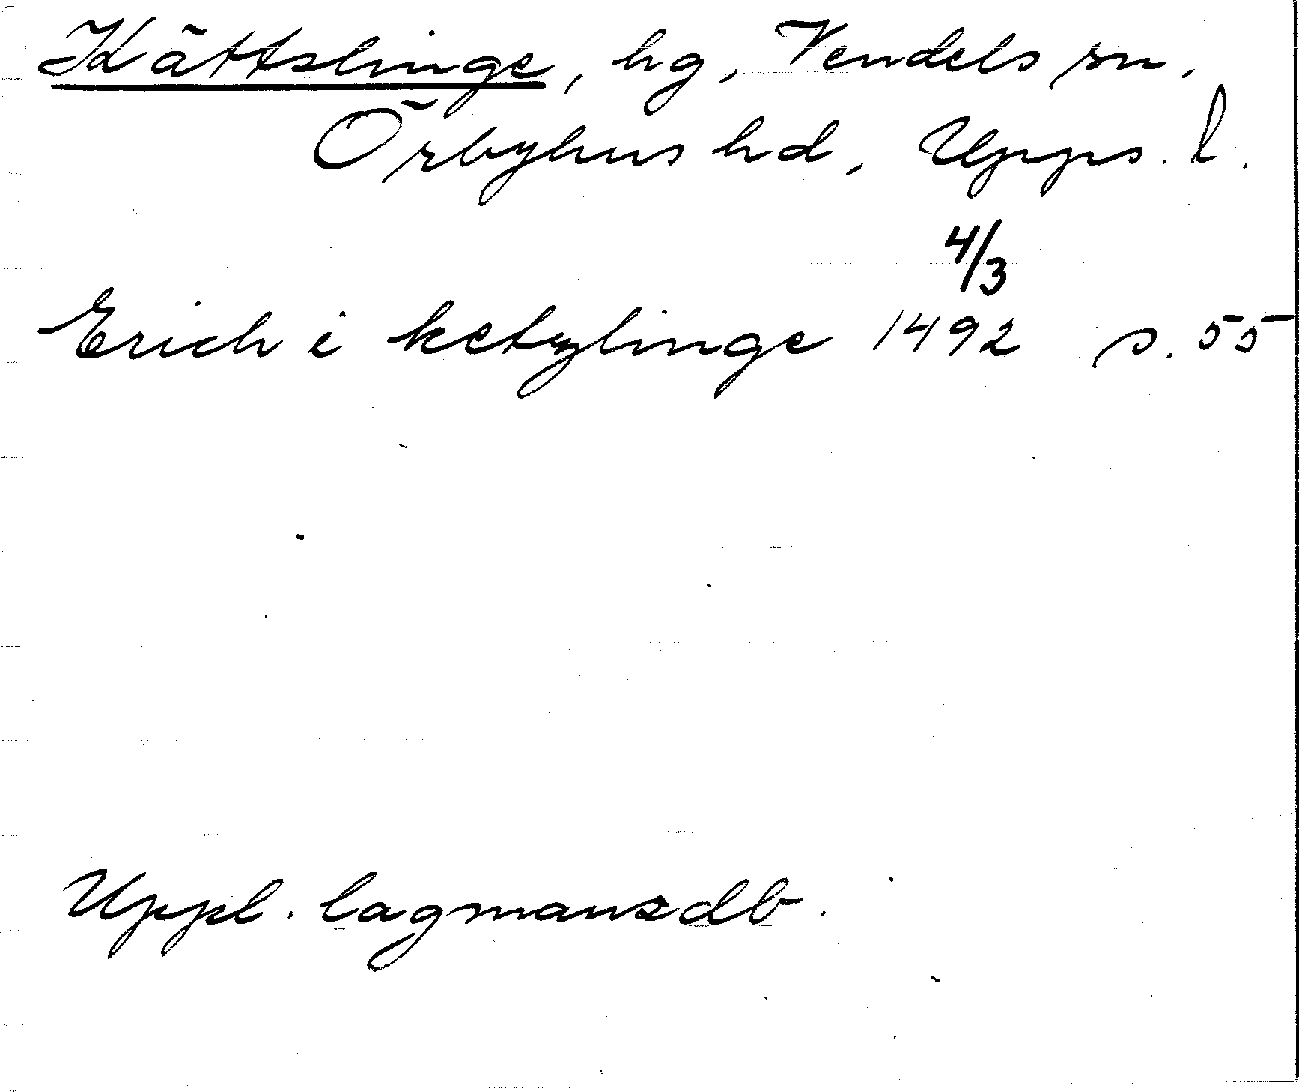 Kättslinge, hg, Vendels sn,
Örbyhus hd, Upps. l.
4/3
Erich i ketzlinge 1492 s. 55
Uppl. lagmansdb.